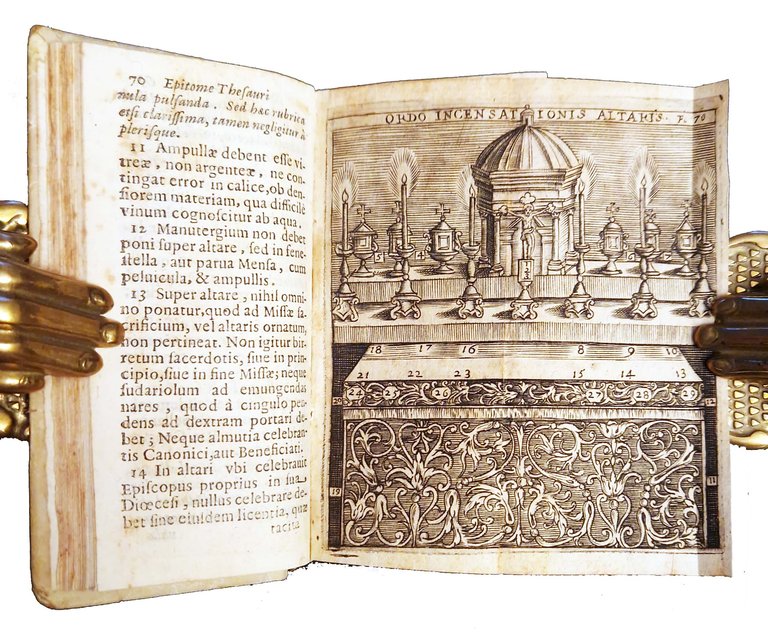 70 Epitome Theſauri
nula pulſanda. Sed hæc rubrica
etſi clariſſima, tamen negligitur à
pleriſque.
11 Ampullæ debent eſſe vi-
treæ, non argenteæ, ne con-
tingat error in calice, ob den-
ſiorem materiam, qua difficilè
vinum cognoſcitur ab aqua.
12 Manutergium non debet
poni ſuper altare, ſed in fene-
ſtella, aut parua Menſa, cum
peluicula, & ampullis.
13 Super altare, nihil omni-
no ponatur, quod ad Miſſæ ſa-
crificium, vel altaris ornatum,
non pertineat. Non igitur bir-
retum ſacerdotis, ſiue in prin-
cipio, ſiue in fine Miſſæ; neque
ſudariolum ad emungendas
nares, quod à cingulo pen-
dens ad dextram portari de-
bet; Neque almutia celebran-
tis Canonici, aut Beneficiati.
14 In altari vbi celebrauit
Epiſcopus proprius in ſua
Diœceſi, nullus celebrare de-
bet ſine eiuſdem licentia, quæ
tacitè
ORDO INCENSATIONIS ALTARIS. F. 70
18 17 16 8 9 10
21 22 23 15 14 13
24 25 26 27 28 29
19 11